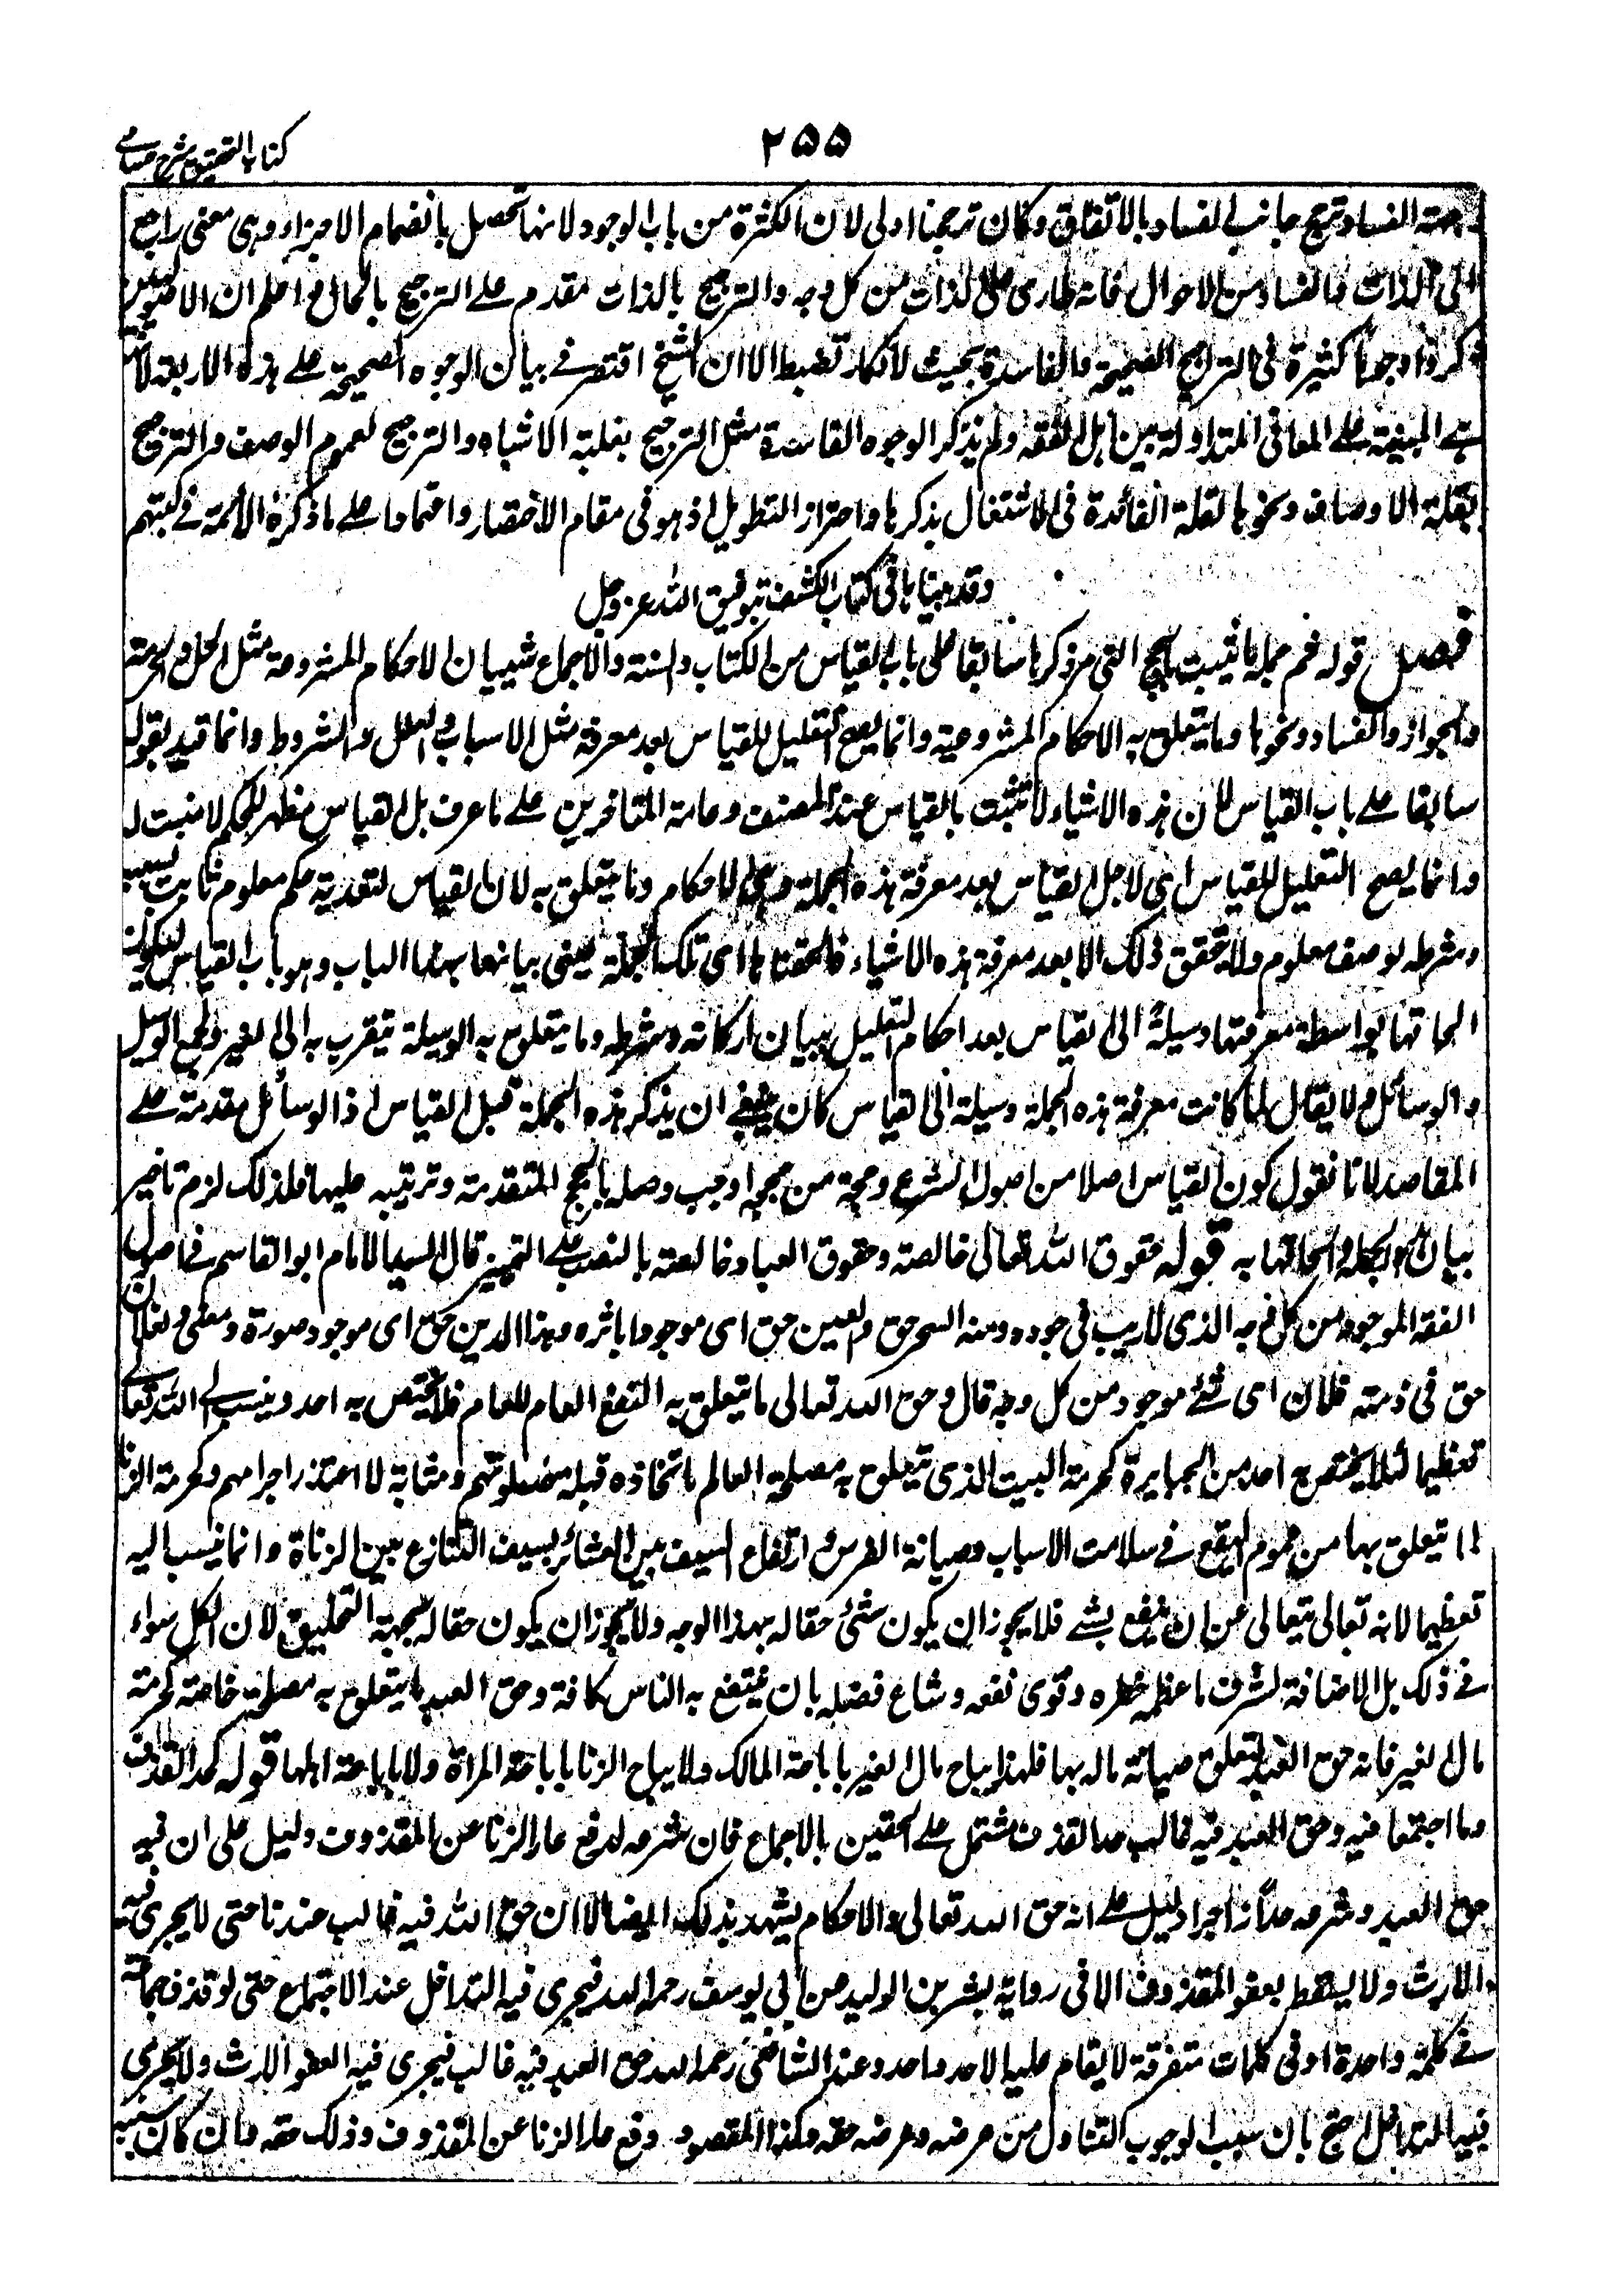 ٢٥٥
كتاب التحقيق شرح حسامي
جهة الفساد ترجح جانب الفساد بالاتفاق وكان ترجيحنا اولى لان الكثرة من باب الوجود لانها تحصل بانضمام الاجزاء وهى معنى راجع
الى الذات والفساد من الاحوال فانه طارى على الذات من كل وجه والترجيح بالذات مقدم على الترجيح بالحال واعلم ان الاصوليين
ذكروا وجوها كثيرة فى التراجيح الصحيحة والفاسدة بحيث لا تكاد تضبط الا ان الشيخ اقتصر فى بيان الوجوه الصحيحة على هذه الاربعة لانها
هى المبنية على المعانى المتداولة بين اهل الفقه ولم يذكر الوجوه الفاسدة مثل الترجيح بغلبة الاشباه والترجيح لعموم الوصف والترجيح
بقلة الاوصاف ونحوها لقلة الفائدة فى الاشتغال بذكرها واحتراز التطويل اذ هو فى مقام الاختصار واعتمادا على ما ذكره الائمة فى كتبهم
وقد بينا باقى كتاب الكشف بتوفيق الله عز وجل
فصل قوله ثم جملة ما يثبت بالحجج التى مر ذكرها سابقا على باب القياس من الكتاب والسنة والاجماع شيئيان الاحكام المشروعة مثل الحل والحرمة
والجواز والفساد ونحوها وما يتعلق به الاحكام المشروعية وانما يصح التعليل للقياس بعد معرفة مثل الاسباب والعلل والشروط وانما قيد بقوله
سابقا على باب القياس لان هذه الاشياء لا تثبت بالقياس عند المصنف وعامة المتاخرين على ما عرف بل القياس مظهر للحكم لا مثبت له
وانما يصح التعليل للقياس اى لاجل القياس بعد معرفة هذه الجملة وهى الاحكام وما يتعلق به لان القياس لتعدية حكم معلوم ثابت بسببه
وشرطه بوصف معلوم ولا تحقق ذلك الا بعد معرفة هذه الاشياء فالحقناها اى تلك الجملة يعنى بيانها بهذا الباب وهو باب القياس ليكون
الحاقها بواسطة معرفتها وسيلة الى القياس بعد احكام التعليل ببيان اركانه وشرطه وما يتعلق به الوسيلة ما يتقرب به الى الغير والجمع الوسيل
والوسائل ولا يقال لما كانت معرفة هذه الجملة وسيلة الى القياس كان ينبغى ان يذكر هذه الجملة قبل القياس اذ الوسائل مقدمة على
المقاصد لانا نقول كون القياس اصلا من اصول الشرع وحجة من حججه اوجب وصله بالحجج المتقدمة وترتيبه عليها فلذلك لزم تاخير
بيان هذه الجملة والحاقها به قوله حقوق الله تعالى خالصة وحقوق العباد خالصة بالنصب على التمييز قال السيد الامام ابو القاسم فى اصول
الفقه الموجود من كل وجه الذى لا ريب فى وجوده ومنه السحر حق والعين حق اى موجود باثره وهذا الدين حق اى موجود صورة ومعنى ولفلان
حق فى ذمة فلان اى شئ موجود من كل وجه قال وحق الله تعالى ما يتعلق به النفع العام للعام فلا يختص به احد وينسب الى الله تعالى
تعظيما لئلا يختص احد من الجبابرة كحرمة البيت الذى يتعلق به مصلحة العالم باتخاذه قبلة لصلوتهم ومثابة لاعتذار اجرامهم وكحرمة الزنا
لما يتعلق بها من عموم النفع فى سلامت الانساب وصيانة الفرش وارتفاع السيف بين العشائر بسبب التنازع بين الزناة وانما ينسب اليه
تعظيما لانه تعالى يتعالى عن ان ينتفع بشئ فلا يجوز ان يكون شئ حقا له بهذا الوجه ولا يجوز ان يكون حقا له بجهة التخليق لان الكل سواء
فى ذلك بل الاضافة لشرف ما عظم خطره وقوى نفعه وشاع فضله بان ينتفع به الناس كافة وحق العبد ما يتعلق به مصلحة خاصة كحرمة
مال الغير فانه حق العبد لتعلق صيانة ماله بها فلهذا يباح مال الغير باباحة المالك ولا يباح الزنا باباحة المراة ولا باباحة اهلها قوله كحد القذف
وما اجتمعا فيه وحق العبد فيه غالب حد القذف مشتمل على الحقين بالاجماع فان شرعه لدفع عار الزنا عن المقذوف دليل على ان فيه
حق العبد وشرعه حدا زاجرا دليل على انه حق الله تعالى والاحكام يشهد بذلك ايضا الا ان حق الله فيه غالب عندنا حتى لا يجرى فيه
الارث ولا يسقط بعفو المقذوف الا فى رواية بشر بن الوليد عن ابى يوسف رحمه الله فيجرى فيه التداخل عند الاجتماع حتى لو قذف جماعة
فى كلمة واحدة او فى كلمات متفرقة لا يقام عليه الا حد واحد وعند الشافعى رحمه الله حق العبد فيه غالب فيجرى فيه العفو الارث ولا يجرى
فيه التداخل احتج بان سبب الوجوب التناول من عرضه وعرضه حقه وكذا المقصود دفع عار الزنا عن المقذوف وذلك حقه فان كان سببه